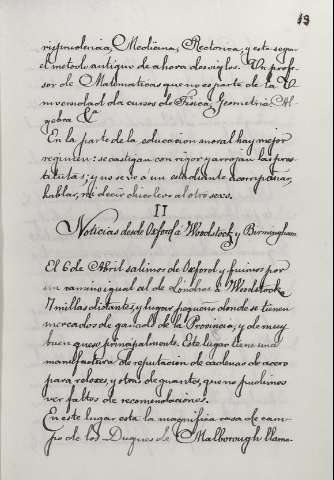 13
risprudencia, Medicina, Rectorica, y este segun
el metodo antiguo de ahora dos siglos. Un profe-
sor de Matematicas que no es parte de la U-
niversidad da cursos de Fisica, Geometria, Al-
gebra &
En la parte de la educacion moral hay mejor
regimen: se castigan con rigor y arrojan las pros-
titutas; y no se ve a un estudiante acompañar,
hablar, ni decir chicoleos al otro sexo.
II
Noticias desde Oxford a Woodstock y Birmingham
El 6 de Abril salimos de Oxford y fuimos por
un camino igual al de Londres a Woodstock
7 millas distante, y lugar pequeño donde se tienen
mercados de ganado de la Provincia, y de muy
buen queso principalmente. Este lugar tiene una
manufactura de reputacion de cadenas de acero
para reloxes, y otras de guantes, que no pudimos
ver faltos de recomendaciones.
En este lugar esta la magnifica casa de cam-
po de los Duques de Malborough llama-